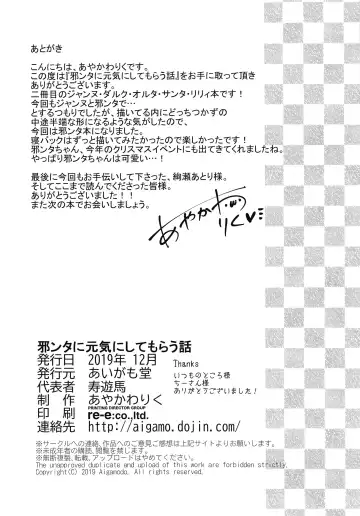 あとがき
こんにちは、あやかわりくです。
この度は『邪ンタに元気にしてもらう話』をお手に取って頂き
ありがとうございます。
二冊目のジャンヌ・ダルク・オルタ・サンタ・リリィ本です！
今回もジャンヌと邪ンタで…
とするつもりでしたが、描いてる内にどっちつかずの
中途半端な形になるような気がしたので、
今回は邪ンタ本になりました。
寝バックはずっと描いてみたかったので楽しかったです！
邪ンタちゃん、今年のクリスマスイベントにも出てきてくれましたね。
やっぱり邪ンタちゃんは可愛い…！
最後に今回もお手伝いして下さった、絢瀬あとり様。
そしてここまで読んでくださった皆様。
ありがとうございました！！
また次の本でお会いしましょう。
あやかわりく♡
邪ンタに元気にしてもらう話
発行日 2019年12月
発行元 あいがも堂
代表者 寿遊馬
制作 あやかわりく
PRINTING DIRECTOR GROUP
印刷 re-e:co.,ltd.
連絡先 http://aigamo.dojin.com/
Thanks
いつものところ様
ちーさん様
ありがとうございました！
※サークルへの連絡、作品へのご意見ご感想は上記サイトよりお願いします。
※未成年者の購読、閲覧を禁じます。
※無断複製、転載、アップロードはやめてください。
The unapproved duplicate and upload of this work are forbidden strictly.
Copyright(C) 2019 Aigamodo. All Rights Reserved.